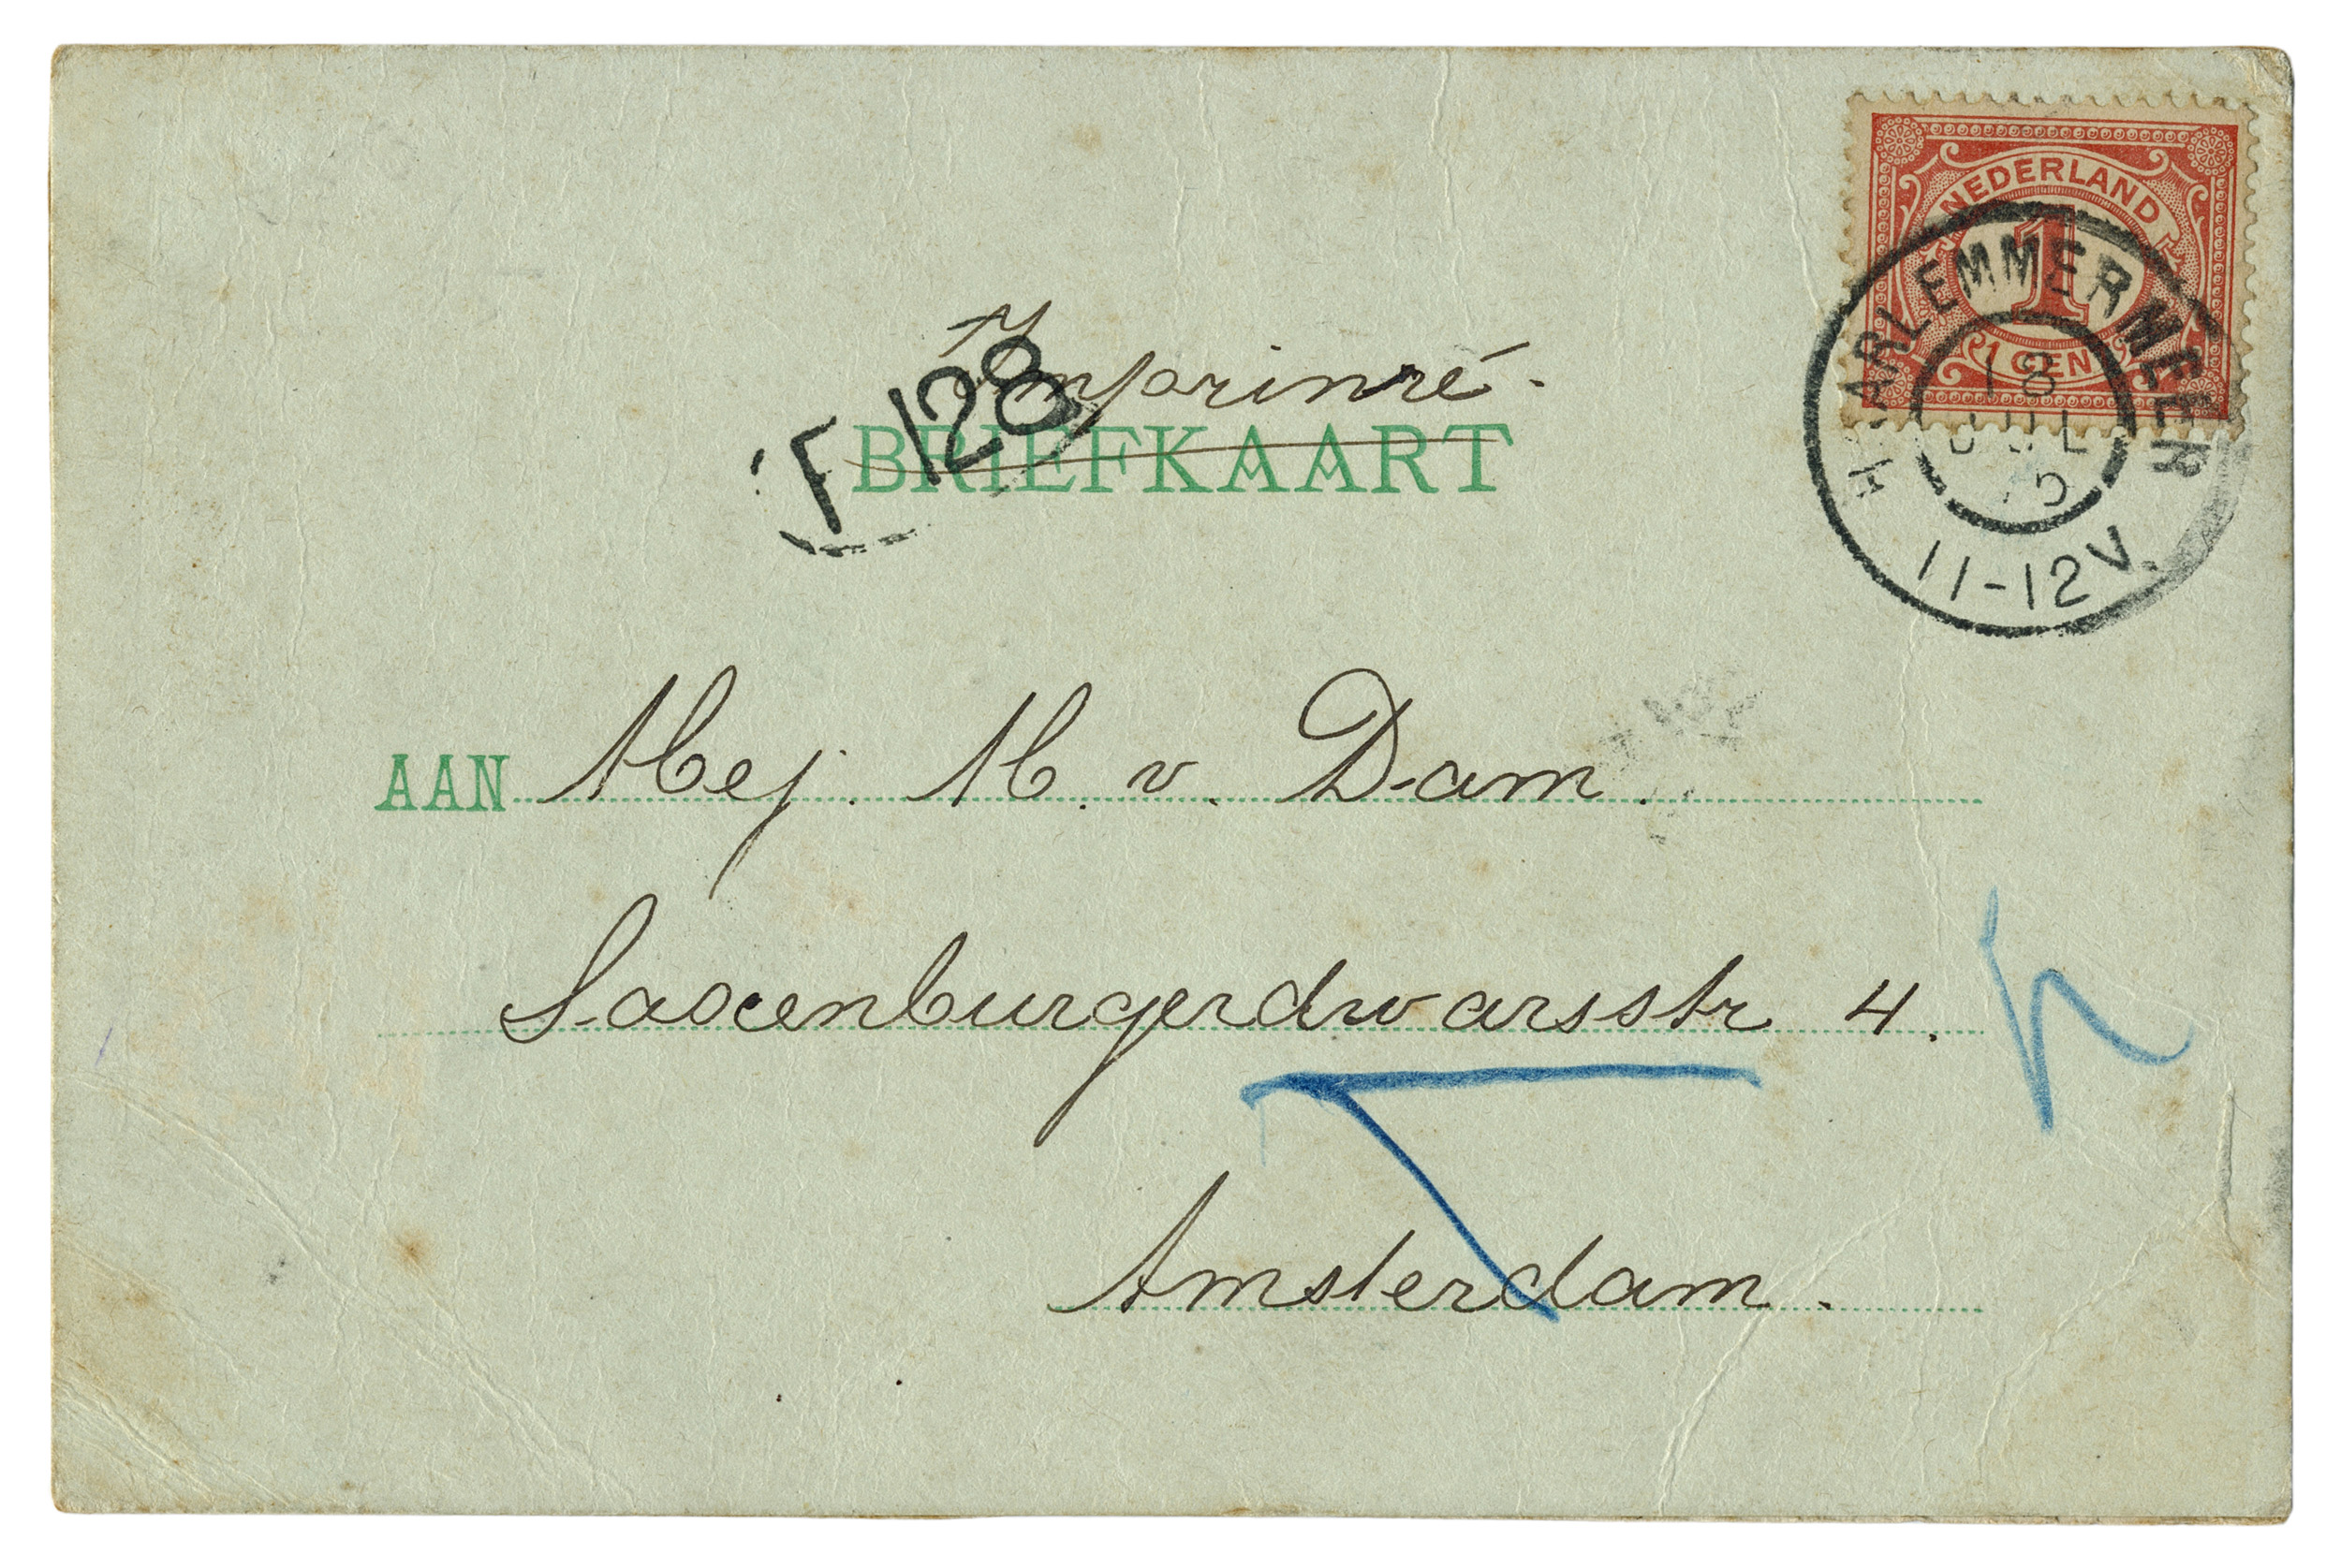 NEDERLAND
1
1 CEN
HAARLEMMERMEER
18
JUL
11-12V.
Imprimé.
F 128
BRIEFKAART
AAN Mej. M. v. Dam.
Saxenburgerdwarsstr 4.
Amsterdam.